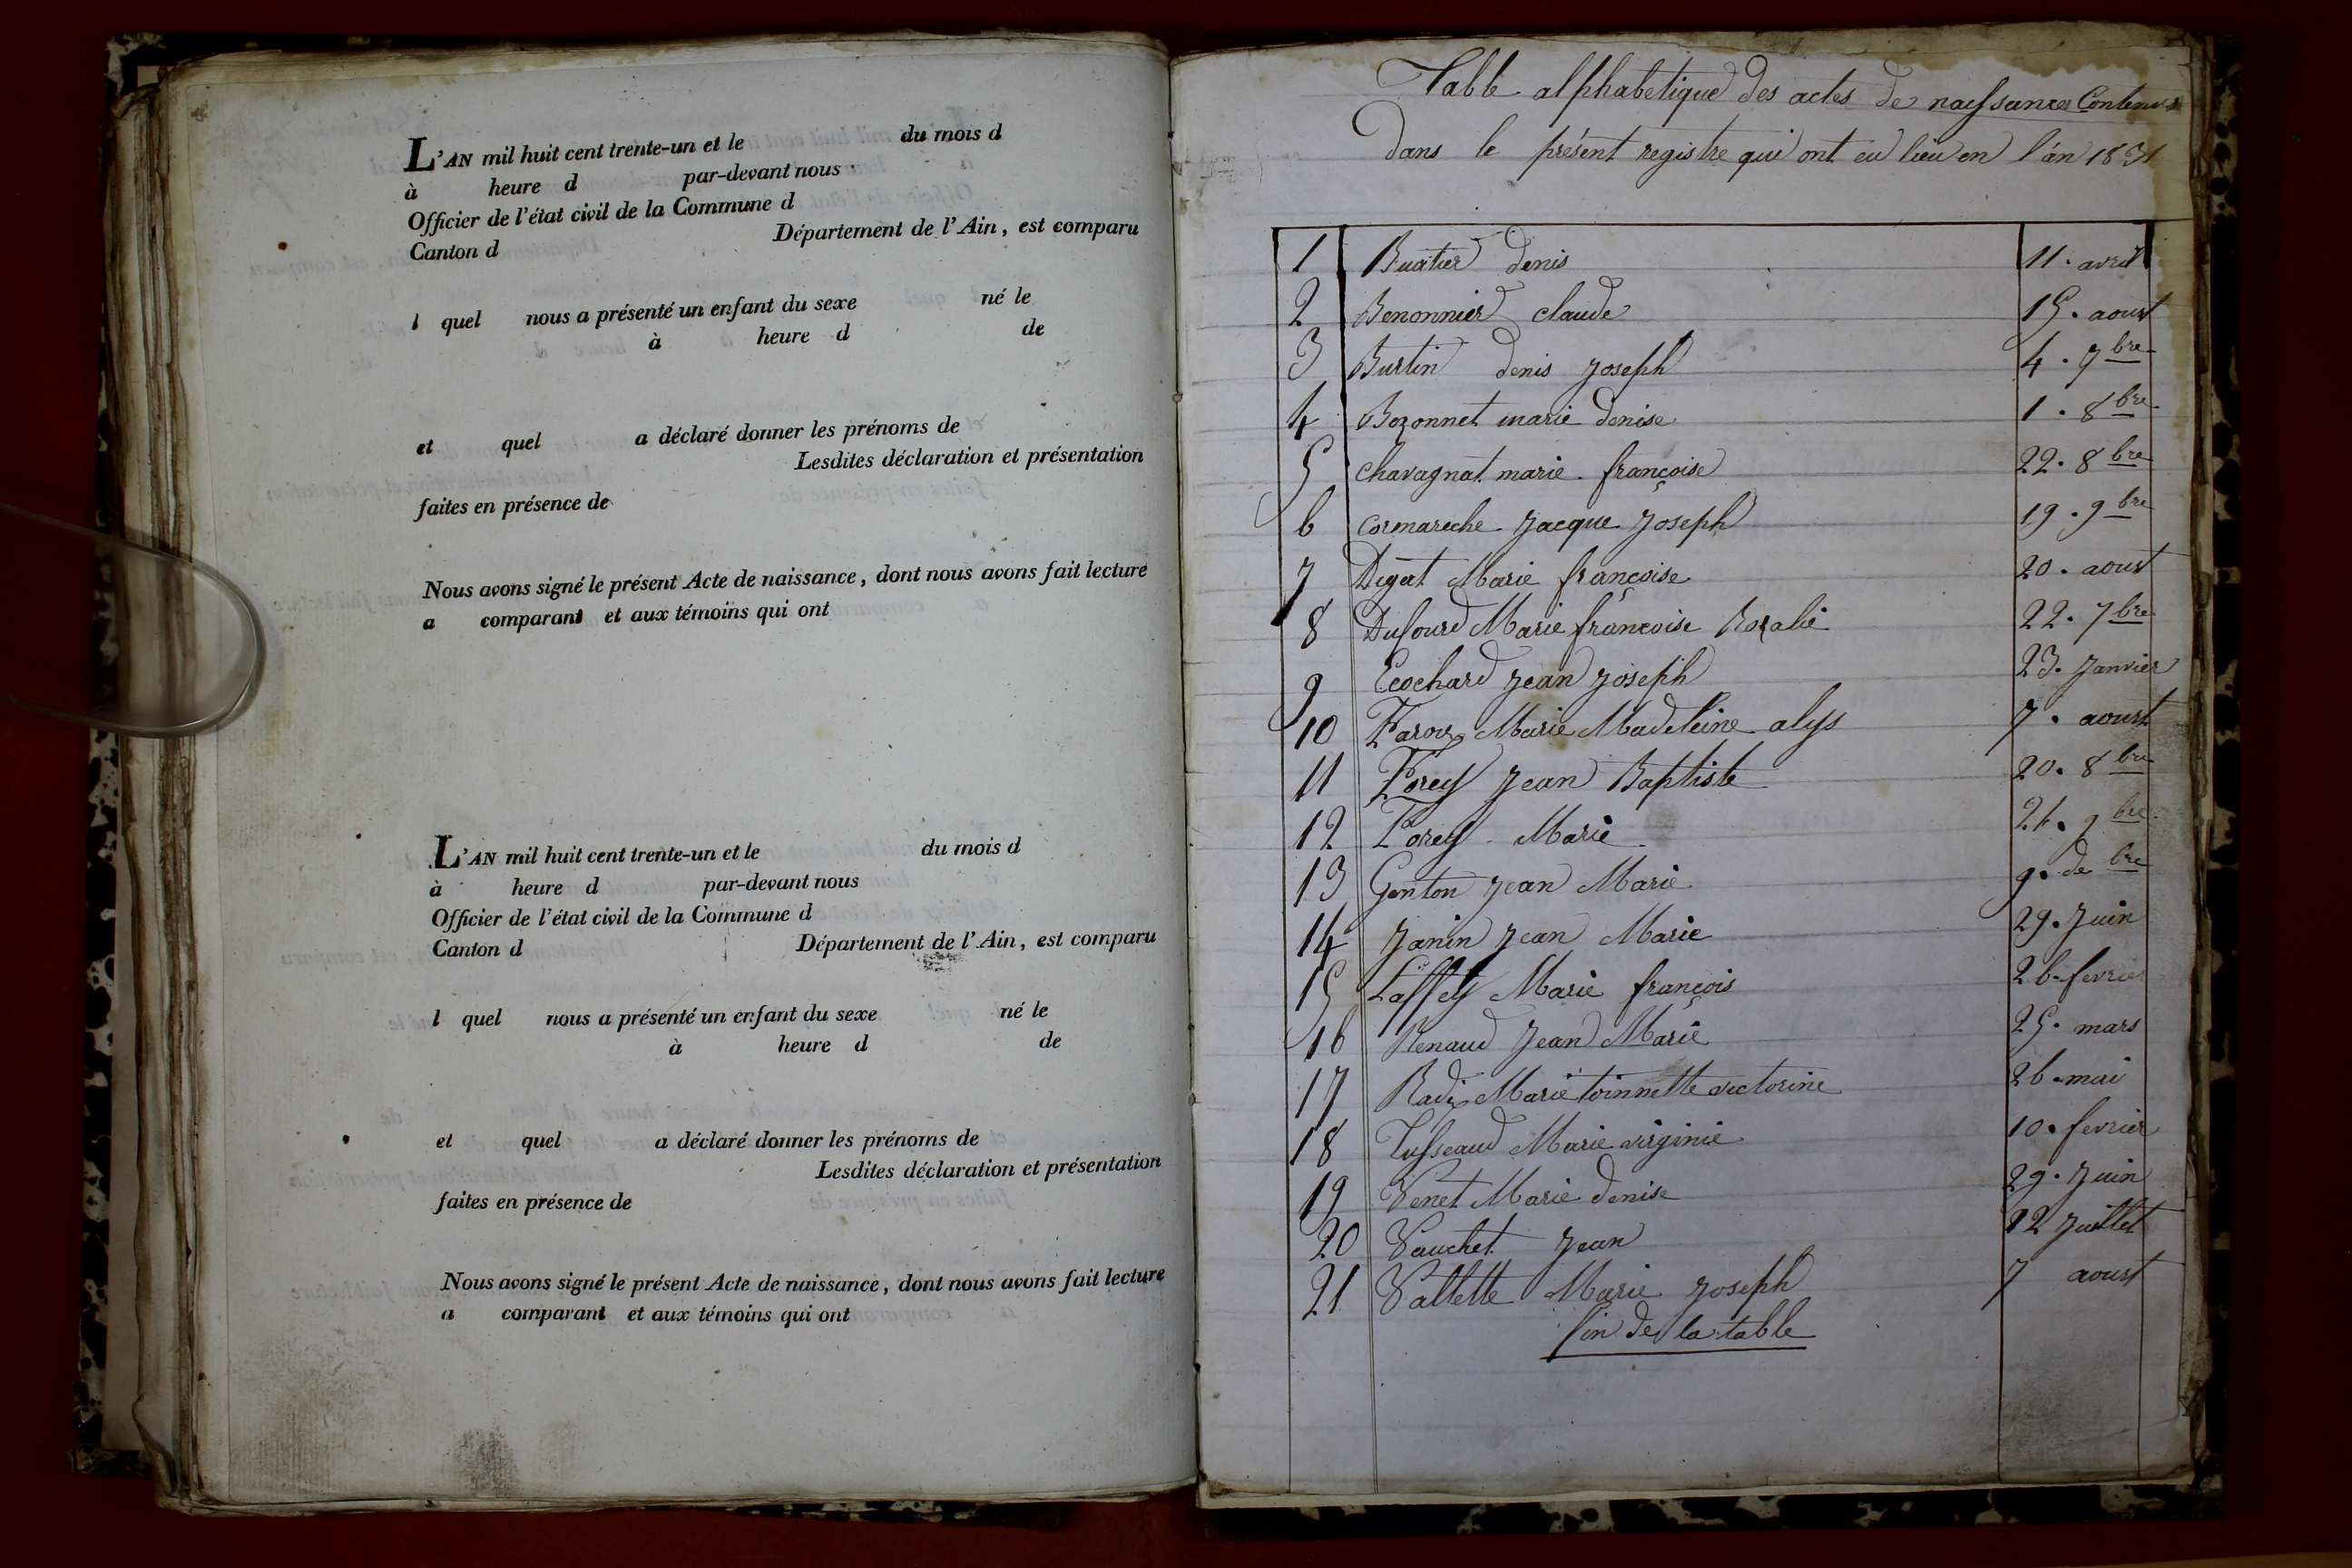 L'AN mil huit cent trente-un et le du mois d
à heure d par-devant nous
Officier de l'état civil de la Commune d
Canton d Département de l'Ain, est comparu
l quel nous a présenté un enfant du sexe né le
à heure d de
et quel a déclaré donner les prénoms de
Lesdites déclaration et présentation
faites en présence de
Nous avons signé le présent Acte de naissance, dont nous avons fait lecture
a comparant et aux témoins qui ont
L'AN mil huit cent trente-un et le du mois d
à heure d par-devant nous
Officier de l'état civil de la Commune d
Canton d Département de l'Ain, est comparu
l quel nous a présenté un enfant du sexe né le
à heure d de
et quel a déclaré donner les prénoms de
Lesdites déclaration et présentation
faites en présence de
Nous avons signé le présent Acte de naissance, dont nous avons fait lecture
a comparant et aux témoins qui ont
Table alphabetique des actes de naissances Contenus
Dans le présent registre qui ont eu lieu en l'an 1831
1 Buatier denis 11. avril
2 Benonnier claude 15. aoust
3 Burtin denis joseph 4. 7bre
4 Bozonnet marie denise 1. 8bre
5 chavagnat marie françoise 22. 8bre
6 cormareche jacque joseph 19. 9bre
7 Degat Marie françoise 20. aoust
8 Dufour Marie françoise Rozalie 22. 7bre
9 Ecochard jean joseph 23. janvier
10 Marie Madeleine alys 7. aoust
11 Forey jean Baptiste 20. 8bre
12 Forey Marie 21. 9bre
13 Genton jean Marie 9. de bre
14 Janin jean Marie 29. juin
15 Laffey Marie françois 26. fevrier
16 Renaud jean Marie 25. mars
17 Radix Marie toinnette victorine 26. mai
18 Tusseaud Marie virginie 10. fevrier
19 Venet Marie denise 29. juin
20 Vauchet jean 12 juillet
21 Vallette Marie joseph 7 aoust
fin de la table